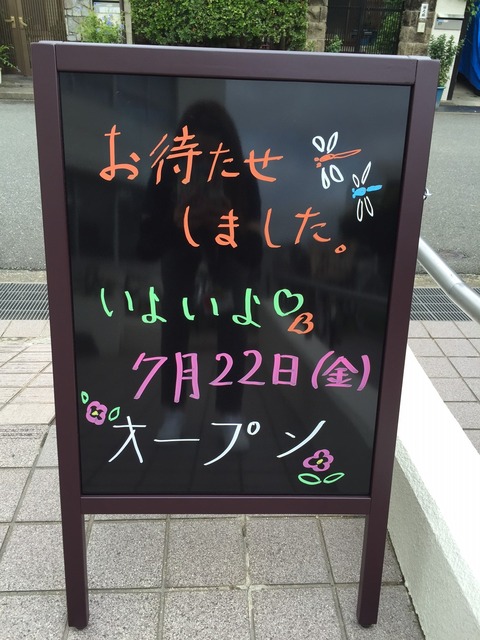 お待たせ
しました。
いよいよ♡
7月22日(金)
オープン